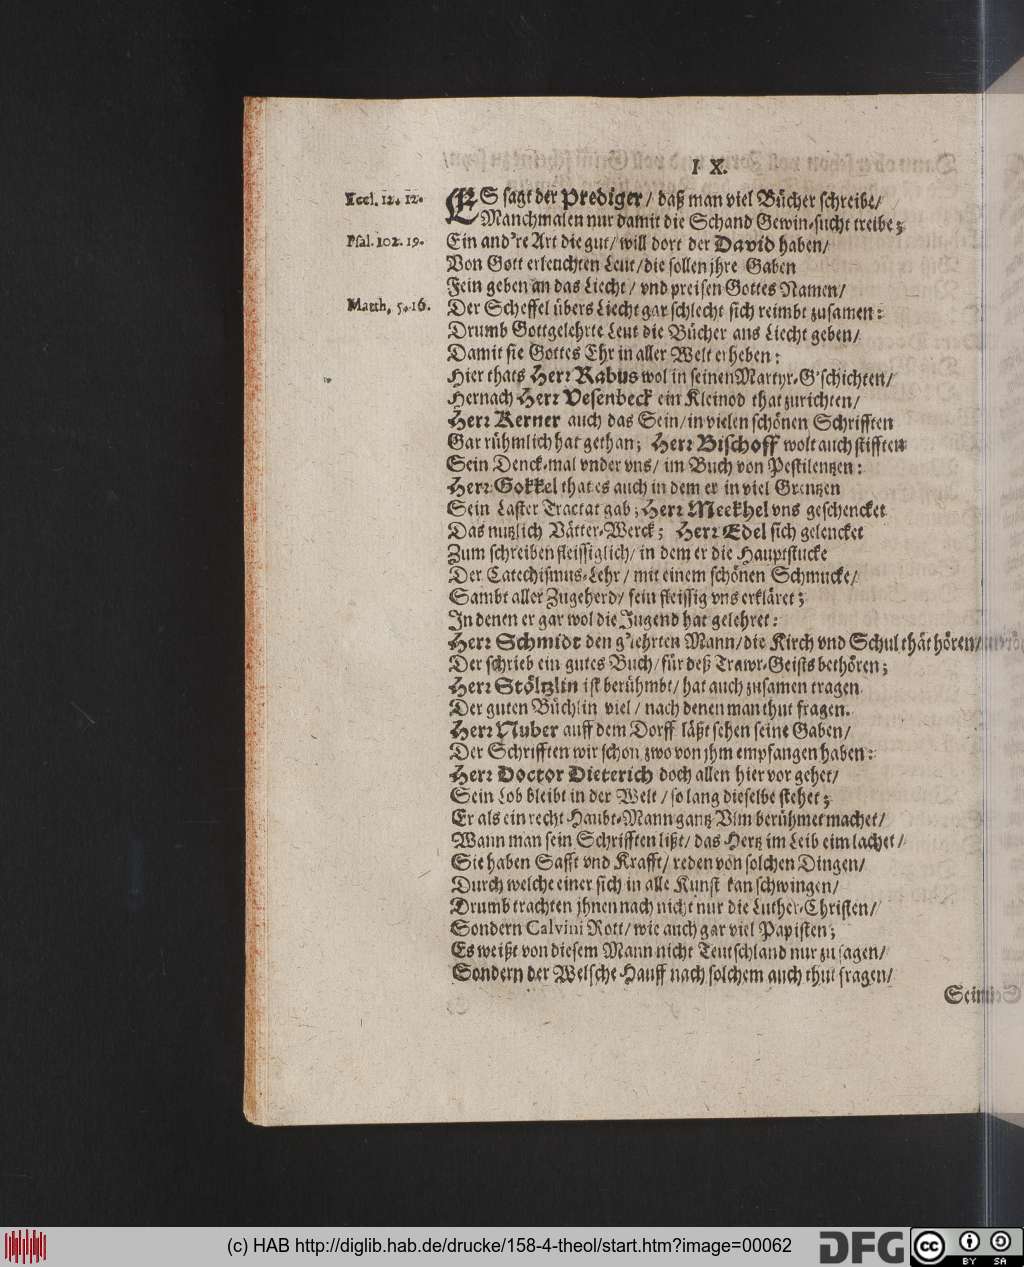 IX.
Eccl. 12. 12.
ES sagt der Prediger / daß man viel Bücher schreibe/
Manchmalen nur damit die Schand Gewin-sucht treibe;
Psal. 102. 19.
Ein and're Art die gut/ will dort der David haben/
Von Gott erleuchten Leut/die sollen jhre Gaben
Fein geben an das Liecht / vnd preisen Gottes Namen/
Matth. 5. 16.
Der Scheffel übers Liecht gar schlecht sich reimbt zusamen:
Drumb Gottgelehrte Leut die Bücher ans Liecht geben/
Damit sie Gottes Ehr in aller Welt erheben:
Hier thats Herr Rabus wol in seinen Martyr-G'schichten/
Hernach Herr Vesenbeck ein Kleinod that zurichten/
Herr Kerner auch das Sein/in vielen schönen Schrifften
Gar rühmlich hat gethan; Herr Bischoff wolt auch stifften
Sein Denck-mal vnder vns/ im Buch von Pestilentzen:
Herr Gokkel that es auch in dem er in viel Grentzen
Sein Laster Tractat gab; Herr Meekhel vns geschencket
Das nutzlich Vätter-Werck; Herr Edel sich gelencket
Zum schreiben fleissiglich/ in dem er die Hauptstucke
Der Catechismus-Lehr / mit einem schönen Schmucke/
Sambt aller Zugeherd/ fein fleissig vns erkläret;
In denen er gar wol die Jugend hat gelehret:
Herr Schmidt den g'lehrten Mann/die Kirch vnd Schul thät hören/
Der schrieb ein gutes Buch/für deß Trawr-Geists bethören;
Herr Stöltzlin ist berühmbt/ hat auch zusamen tragen
Der guten Büchlin viel / nach denen man thut fragen.
Herr Nuber auff dem Dorff läßt sehen seine Gaben/
Der Schrifften wir schon zwo von jhm empfangen haben:
Herr Doctor Dieterich doch allen hier vor gehet/
Sein Lob bleibt in der Welt / so lang dieselbe stehet;
Er als ein recht Haubt-Mann gantz Vlm berühmet machet/
Wann man sein Schrifften lißt/ das Hertz im Leib eim lachet/
Sie haben Safft vnd Krafft/ reden von solchen Dingen/
Durch welche einer sich in alle Kunst kan schwingen/
Drumb trachten jhnen nach nicht nur die Luther-Christen/
Sondern Calvini Rott/ wie auch gar viel Papisten;
Es weißt von diesem Mann nicht Teutschland nur zu sagen/
Sondern der Welsche Hauff nach solchem auch thut fragen/
(c) HAB http://diglib.hab.de/drucke/158-4-theol/start.htm?image=00062
DFG
cc BY SA